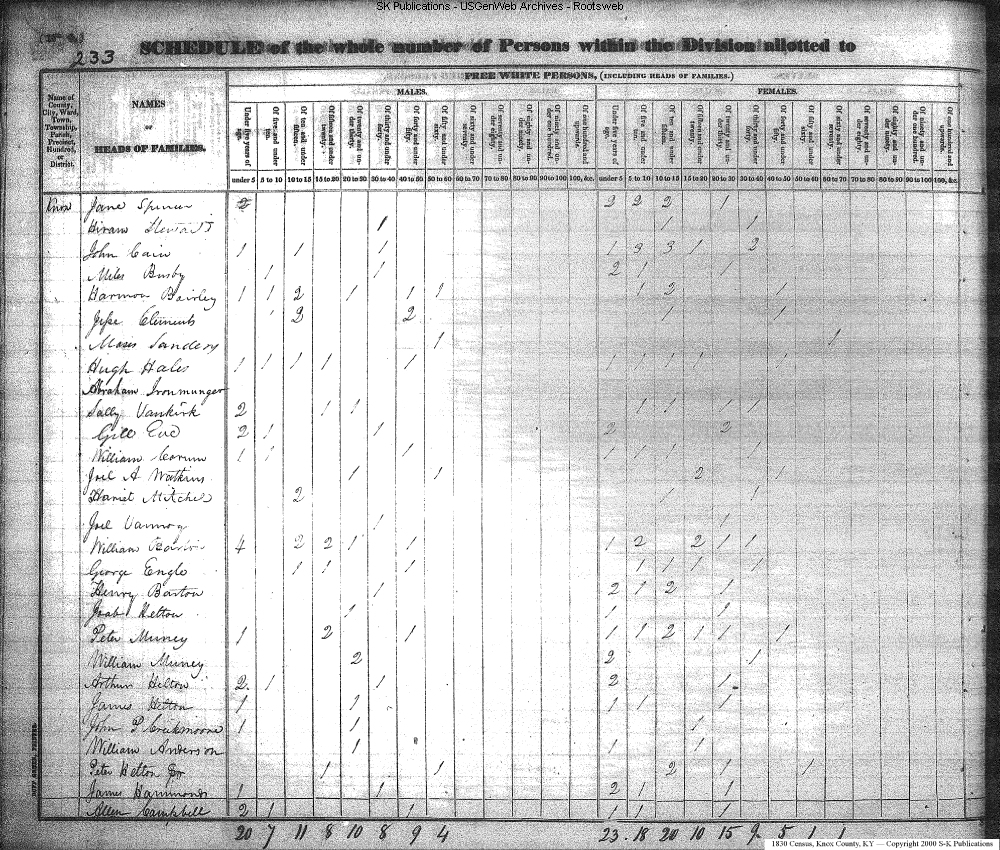 SK Publications - USGenWeb Archives - Rootsweb
233
SCHEDULE of the whole number of Persons within the Division allotted to
FREE WHITE PERSONS, (INCLUDING HEADS OF FAMILIES.)
MALES. FEMALES.
Name of County, City, Ward, Town, Township, Parish, Precinct, Hundred, or District.
NAMES
OF
HEADS OF FAMILIES.
Under five years of age. Of five and under ten. Of ten and under fifteen. Of fifteen and under twenty. Of twenty and under thirty. Of thirty and under forty. Of forty and under fifty. Of fifty and under sixty. Of sixty and under seventy. Of seventy and under eighty. Of eighty and under ninety. Of ninety and under one hundred. Of one hundred and upwards. Under five years of age. Of five and under ten. Of ten and under fifteen. Of fifteen and under twenty. Of twenty and under thirty. Of thirty and under forty. Of forty and under fifty. Of fifty and under sixty. Of sixty and under seventy. Of seventy and under eighty. Of eighty and under ninety. Of ninety and under one hundred. Of one hundred and upwards.
under 5 5 to 10 10 to 15 15 to 20 20 to 30 30 to 40 40 to 50 50 to 60 60 to 70 70 to 80 80 to 90 90 to 100 100, &c. under 5 5 to 10 10 to 15 15 to 20 20 to 30 30 to 40 40 to 50 50 to 60 60 to 70 70 to 80 80 to 90 90 to 100 100, &c.
Knox Jane 2 2 2 2 1
Hiram 1 1 1
John Cain 1 1 1 1 3 3 1 2
Miles Busby 1 1 2 1 1
Harmon 1 1 2 1 1 1 1 2 1
Clements 1 2 2 1 1
Moses Sanders 1 1
Hugh Hales 1 1 1 1 1 1 1 1 1 1 1
Abraham Ironmunger
Sally Vankirk 2 1 1 1 1 1 1
Gill 2 1 1 2 2
William Corum 1 1 1 1 1 1 1
Joel A Watkins 1 1 2 1
Harriet Mitchel 2 1 1
Joel 1 1
William 4 2 2 1 1 1 2 2 1 1
George Engle 1 1 1 1 1 1 1
Henry Barton 1 2 1 2 1
Helton 1 1 1
Peter Muncy 1 2 1 1 1 2 1 1 1
William Muncy 2 2 1
Arthur Helton 2 1 1 2 1
James Helton 1 1 1 1 1
John P Creekmoore 1 1 1
William Anderson 1 1 1
Peter Helton 1 1 2 1 1
James Hammonds 1 1 2 1 1
Allen Campbell 2 1 1 1 1 1
20 7 11 8 10 8 9 4 23 18 20 10 15 9 5 1 1
1830 Census, Knox County, KY — Copyright 2000 S-K Publications